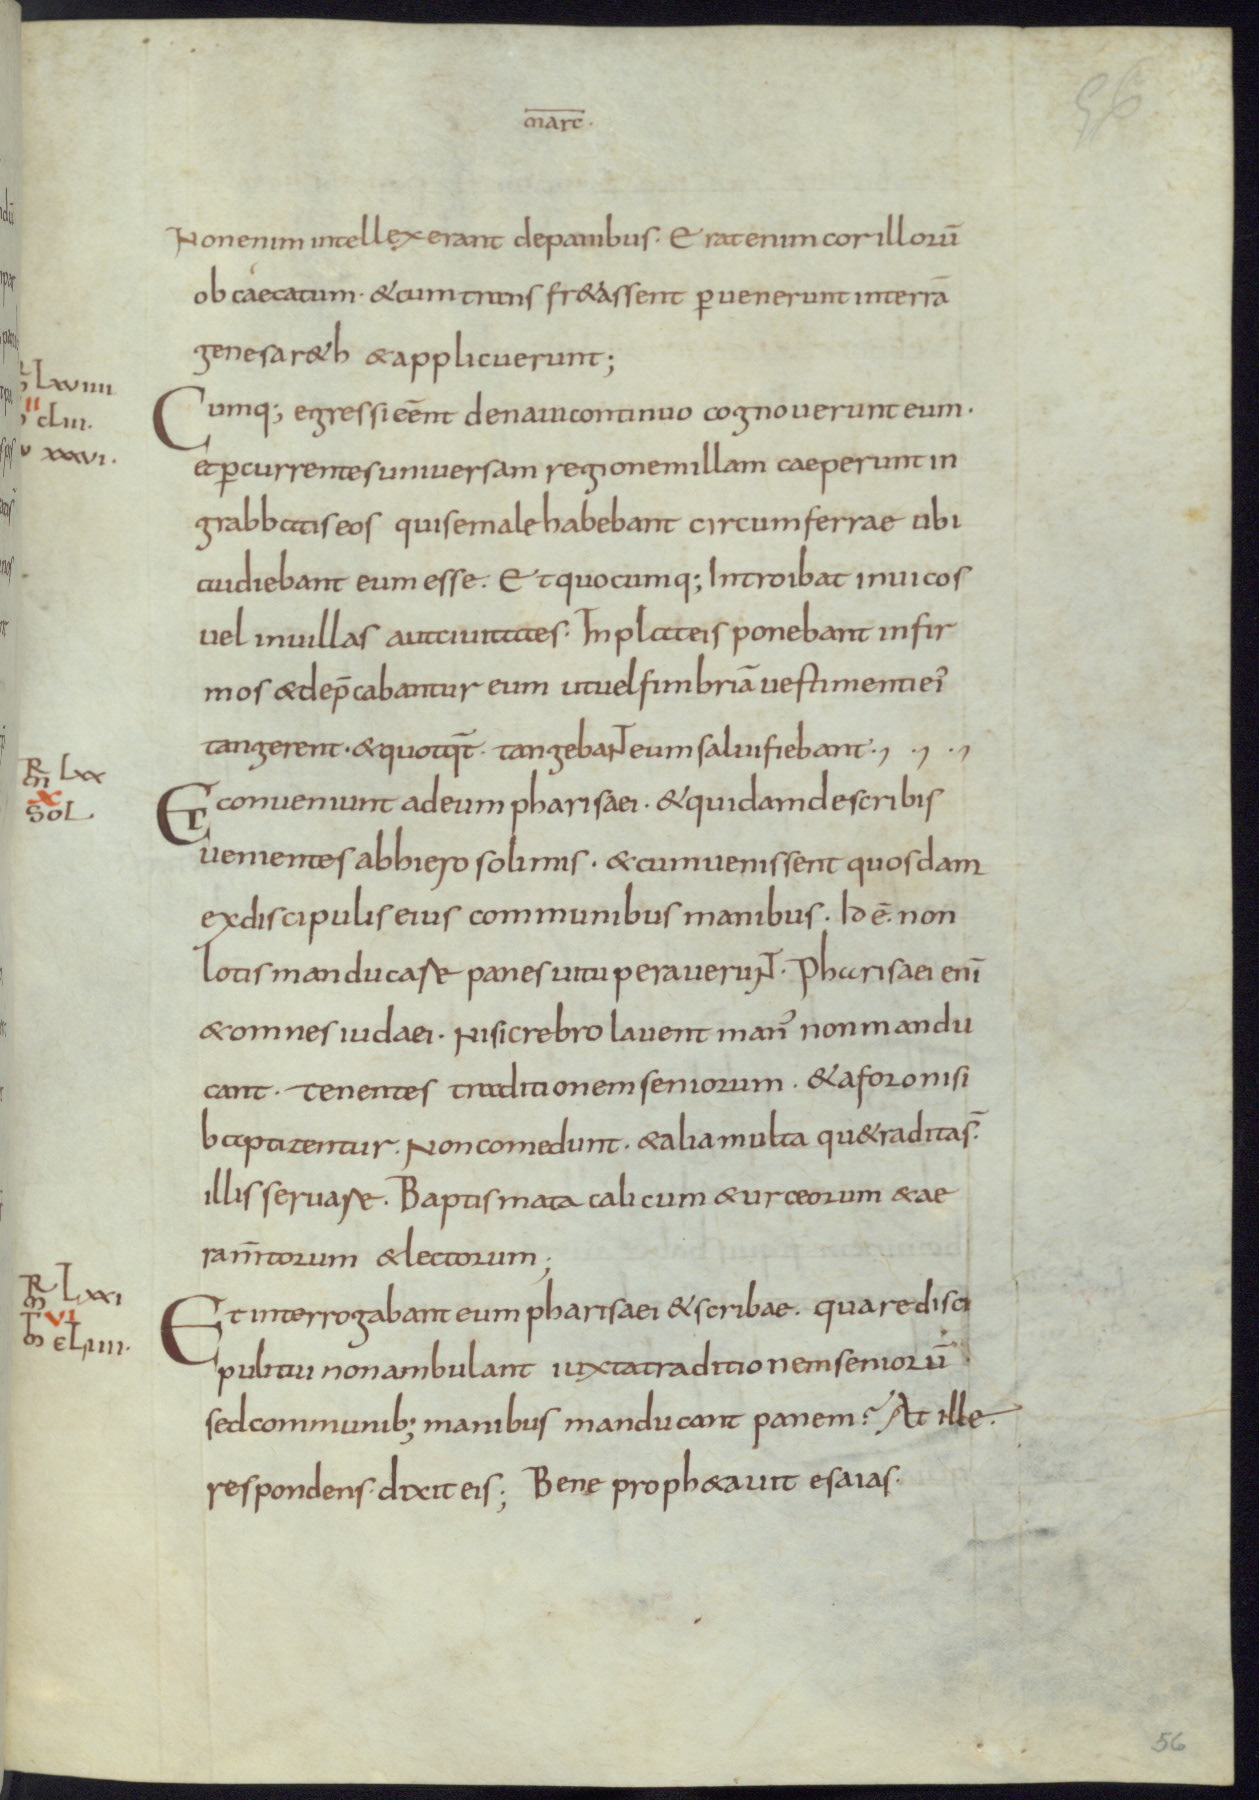 marc̄.
56
Non enim intellexerant de panibus. Erat enim cor illorū
obcaecatum. & cum trans fr&assent ꝑuenerunt in terrā
genesar&h & applicuerunt;
Cumq; egressi eēnt de naui continuo cognouerunt eum.
et ꝑcurrentes uniuersam regionem illam caeperunt in
grabbatis eos qui se male habebant circumferrae ubi
audiebant eum esse. Et quocumq; Introibat in uicos
uel in uillas aut ciuitates. In plateis ponebant infir
mos & dep̄cabantur eum ut uel fimbriā uestimenti ei᾿
tangerent. & quotq̄t tangebant eum salui fiebant., ., .,
R̄ m̄ Lxuiiii
II
cLiii.
xxxui.
Et conueniunt ad eum pharisaei. & quidam de scribis
uenientes ab hierosolimis. & cum uenissent quosdam
ex discipulis eius communibus manibus. Id ē. non
lotis manducare panes uituperauerunt. Pharisaei eni̅
& omnes iudaei. Nisi crebro lauent man᾿ non mandu
cant. Tenentes traditionem seniorum. & a foro nisi
baptizentur. Non comedunt. & alia multa qu& radita s̄.
illis seruare. Baptismata calicum & urceorum & ae
ram̄torum & lectorum;
R̄ m̄ Lxx
x
SOL
Et interrogabant eum pharisaei & scribae. quare disci
puli tui non ambulant iuxta traditionem seniorū
sed communib; manibus manducant panem? At ille.
respondens. dixit eis; Bene proph&auit esaias.
R̄ m̄ Lxxi
VI
m̄ cLiiii.
56